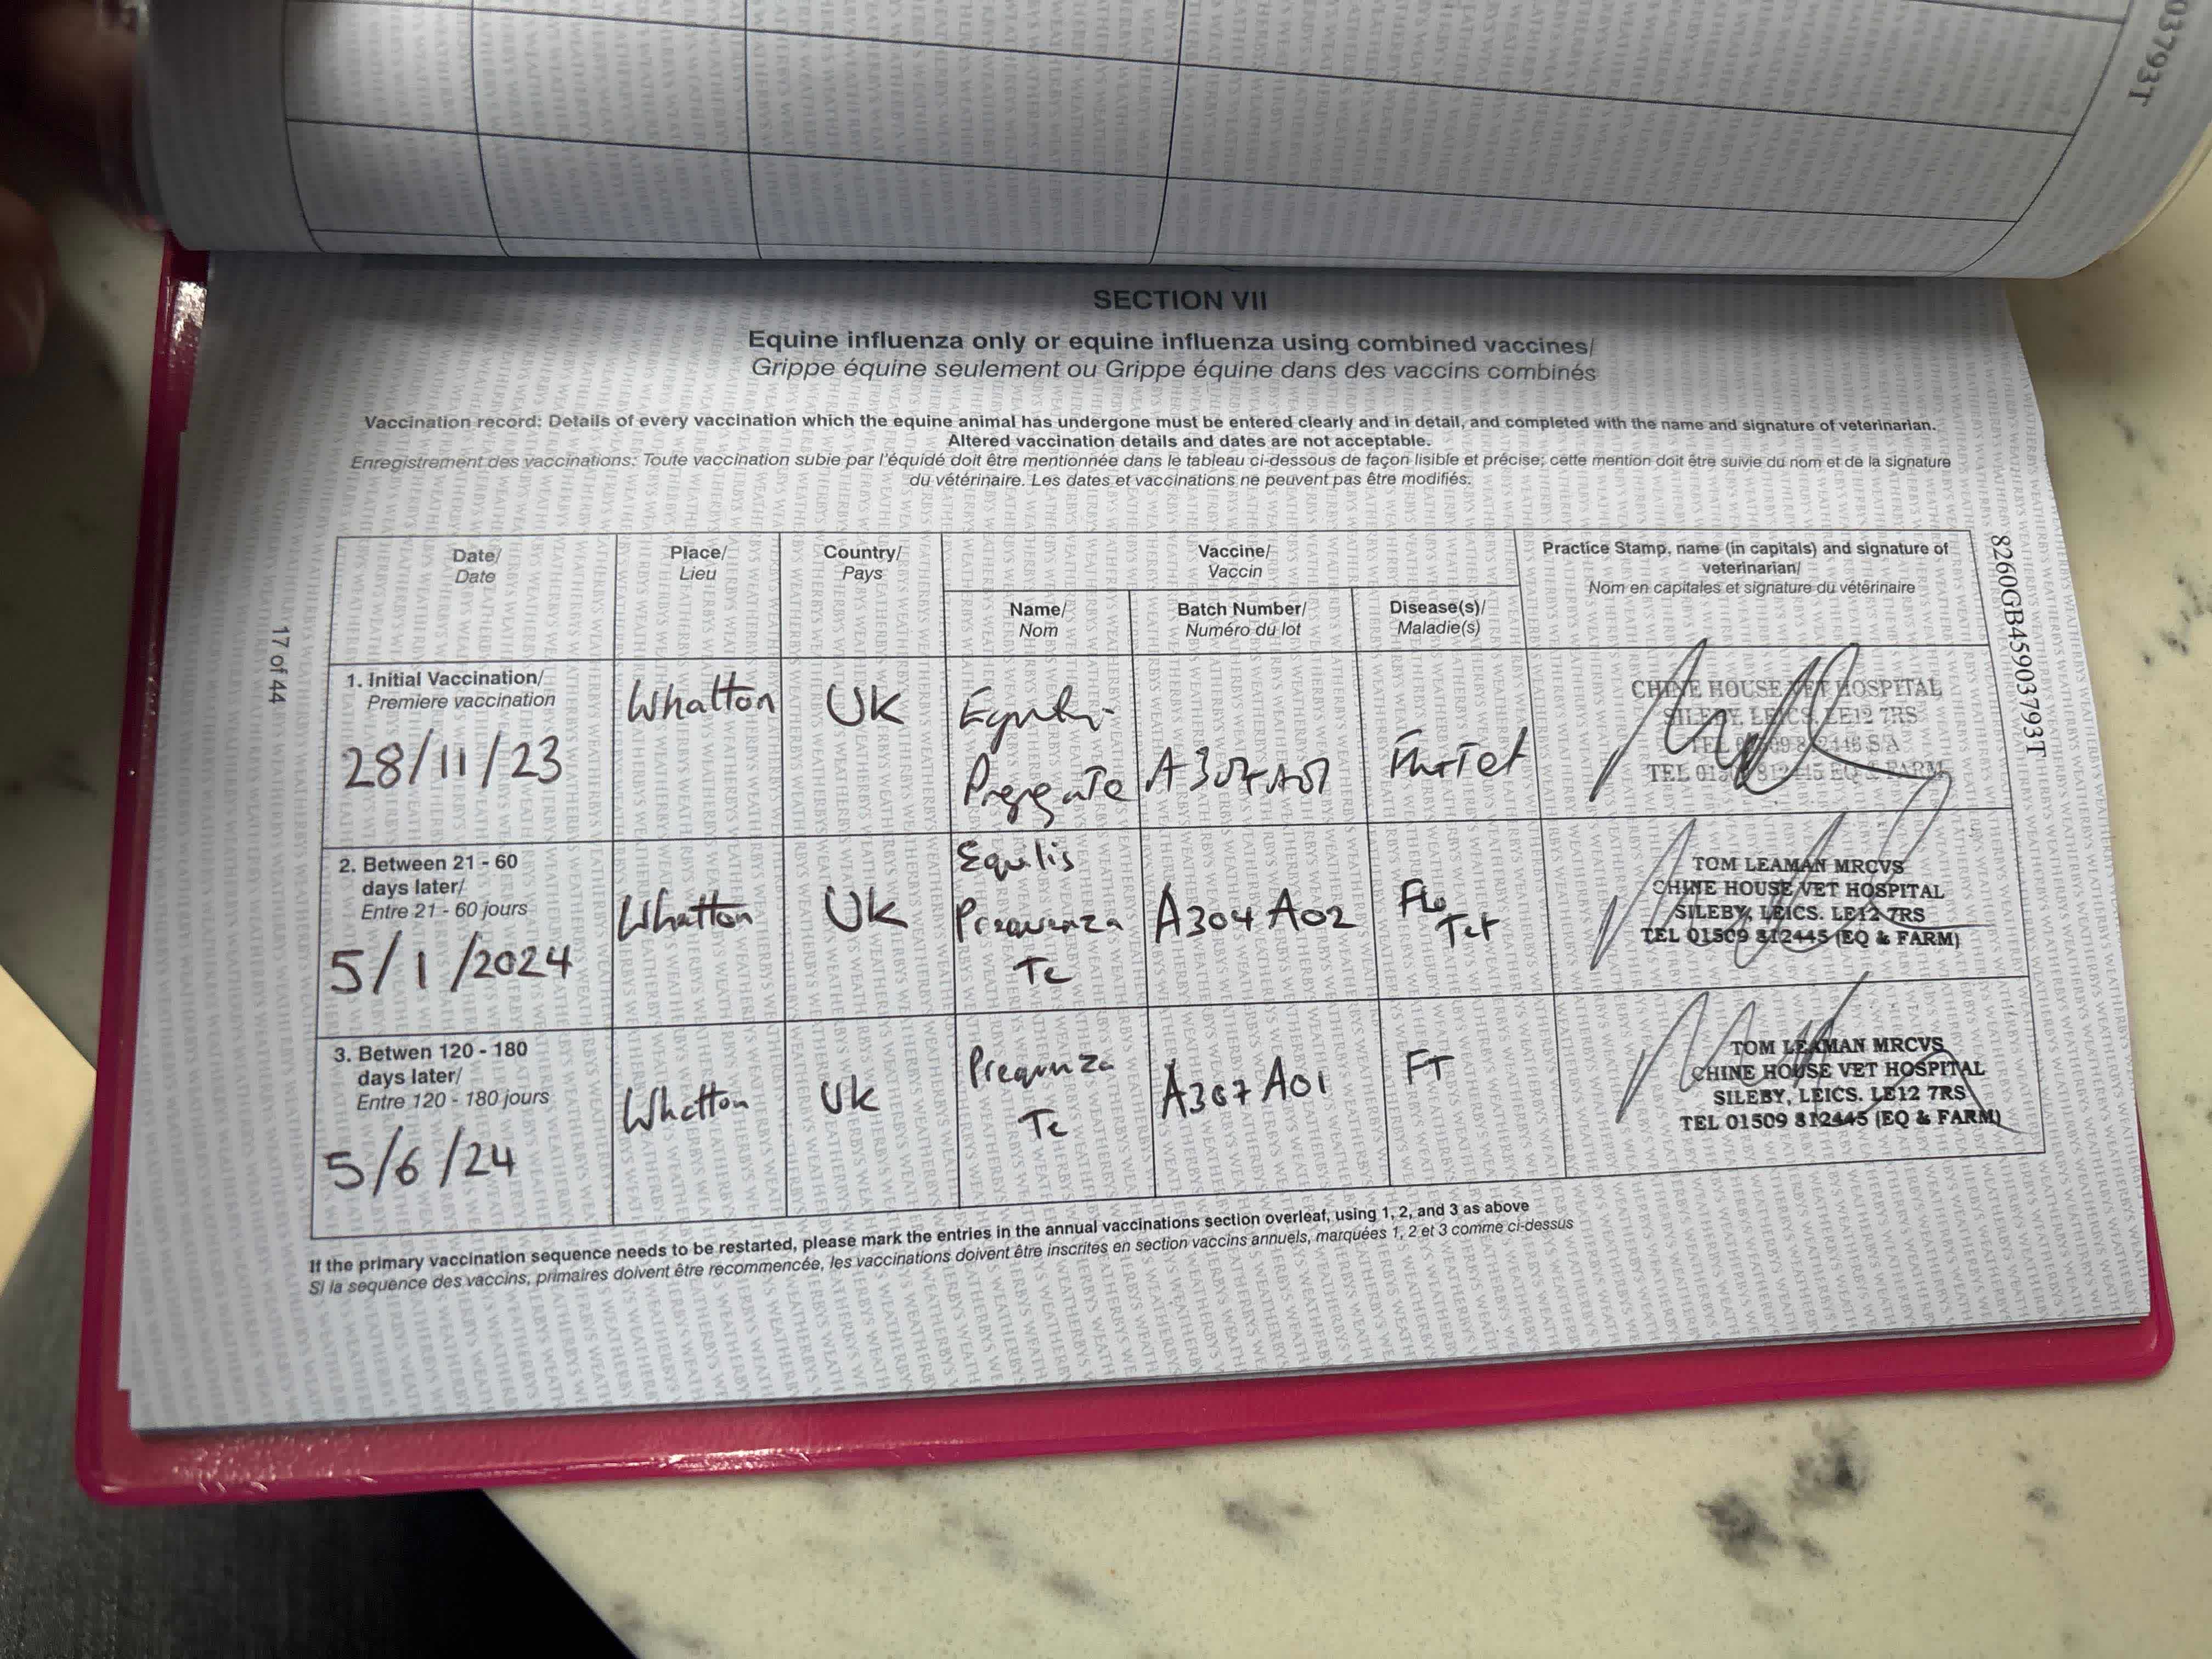 03793T
SECTION VII
Equine influenza only or equine influenza using combined vaccines/
Grippe équine seulement ou Grippe équine dans des vaccins combinés
Vaccination record: Details of every vaccination which the equine animal has undergone must be entered clearly and in detail, and completed with the name and signature of veterinarian.
Altered vaccination details and dates are not acceptable.
Enregistrement des vaccinations: Toute vaccination subie par l'équidé doit être mentionnée dans le tableau ci-dessous de façon lisible et précise; cette mention doit être suivie du nom et de la signature
du vétérinaire. Les dates et vaccinations ne peuvent pas être modifiés.
Date/
Date
Place/
Lieu
Country/
Pays
Vaccine/
Vaccin
Name/
Nom
Batch Number/
Numéro du lot
Disease(s)/
Maladie(s)
Practice Stamp, name (in capitals) and signature of
veterinarian/
Nom en capitales et signature du vétérinaire
1. Initial Vaccination/
Premiere vaccination
28/11/23
Whatton
UK
CHINE HOUSE VET HOSPITAL
SILEBY, LEICS. LE12 7RS
2. Between 21 - 60
days later/
Entre 21 - 60 jours
5/1/2024
Whatton
UK
Equilis
Prequenza
Te
A304 A02
Flu
Tet
TOM LEAMAN MRCVS
CHINE HOUSE VET HOSPITAL
SILEBY, LEICS. LE12 7RS
TEL 01509 812445 (EQ & FARM)
3. Betwen 120 - 180
days later/
Entre 120 - 180 jours
5/6/24
Whatton
UK
Prequnza
Te
A307 A01
FT
TOM LEAMAN MRCVS
CHINE HOUSE VET HOSPITAL
SILEBY, LEICS. LE12 7RS
TEL 01509 812445 (EQ & FARM)
If the primary vaccination sequence needs to be restarted, please mark the entries in the annual vaccinations section overleaf, using 1, 2, and 3 as above
Si la sequence des vaccins, primaires doivent être recommencée, les vaccinations doivent être inscrites en section vaccins annuels, marquées 1, 2 et 3 comme ci-dessus
17 of 44
8260GB45903793T